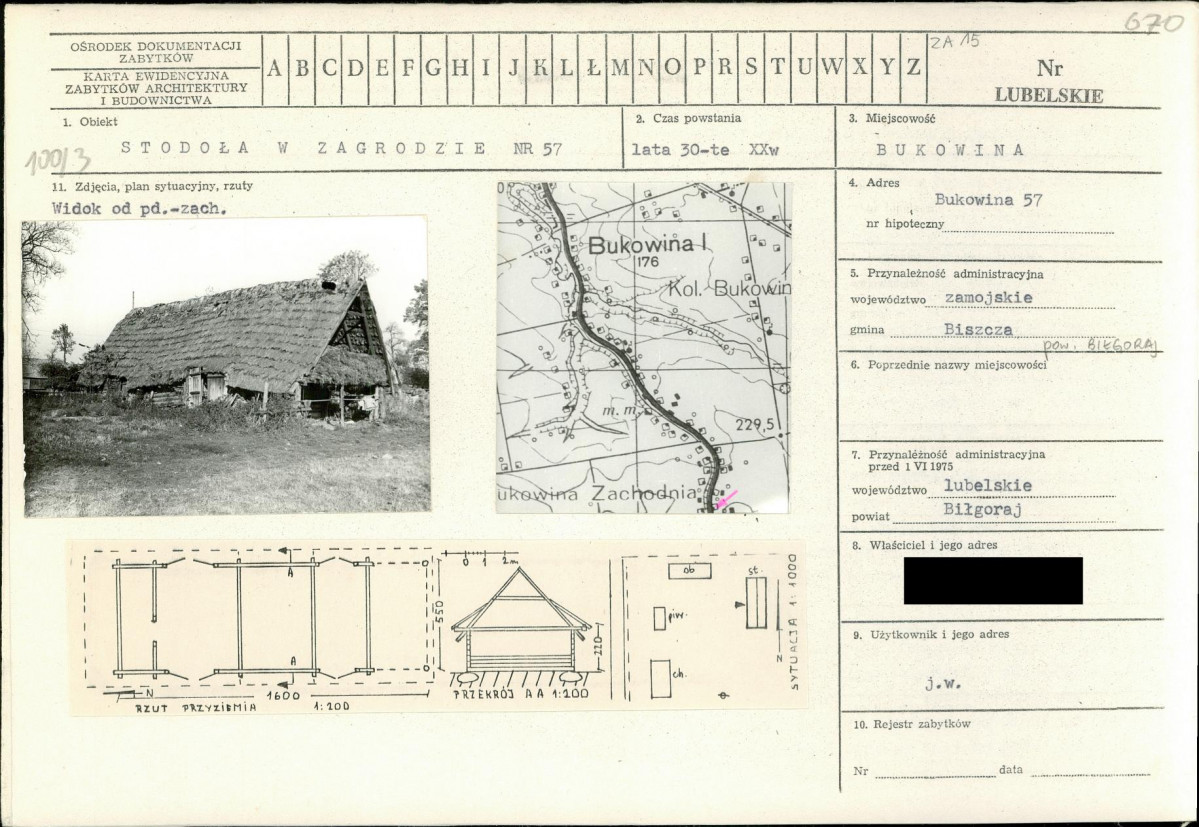 670
OŚRODEK DOKUMENTACJI
ZABYTKÓW
KARTA EWIDENCYJNA
ZABYTKÓW ARCHITEKTURY
I BUDOWNICTWA
A B C D E F G H I J K L Ł M N O P R S T U W X Y Z
ZA 15
Nr
LUBELSKIE
1. Obiekt
STODOŁA W ZAGRODZIE NR 57
100/3
2. Czas powstania
lata 30-te XXw
3. Miejscowość
BUKOWINA
11. Zdjęcia, plan sytuacyjny, rzuty
Widok od pd.-zach.
Bukowina I
176
Kol. Bukowin
m. m.
229,5
ukowina Zachodnia
4. Adres
Bukowina 57
nr hipoteczny
5. Przynależność administracyjna
województwo zamojskie
gmina Biszcza
pow. BIŁGORAJ
6. Poprzednie nazwy miejscowości
7. Przynależność administracyjna
przed 1 VI 1975
województwo lubelskie
powiat Biłgoraj
8. Właściciel i jego adres
9. Użytkownik i jego adres
j.w.
10. Rejestr zabytków
Nr data
A
A
N
1600
RZUT PRZYZIEMIA 1:200
0 1 2m
550
220
PRZEKRÓJ AA 1:200
ob
st.
piw.
ch.
N
SYTUACJA 1:1000